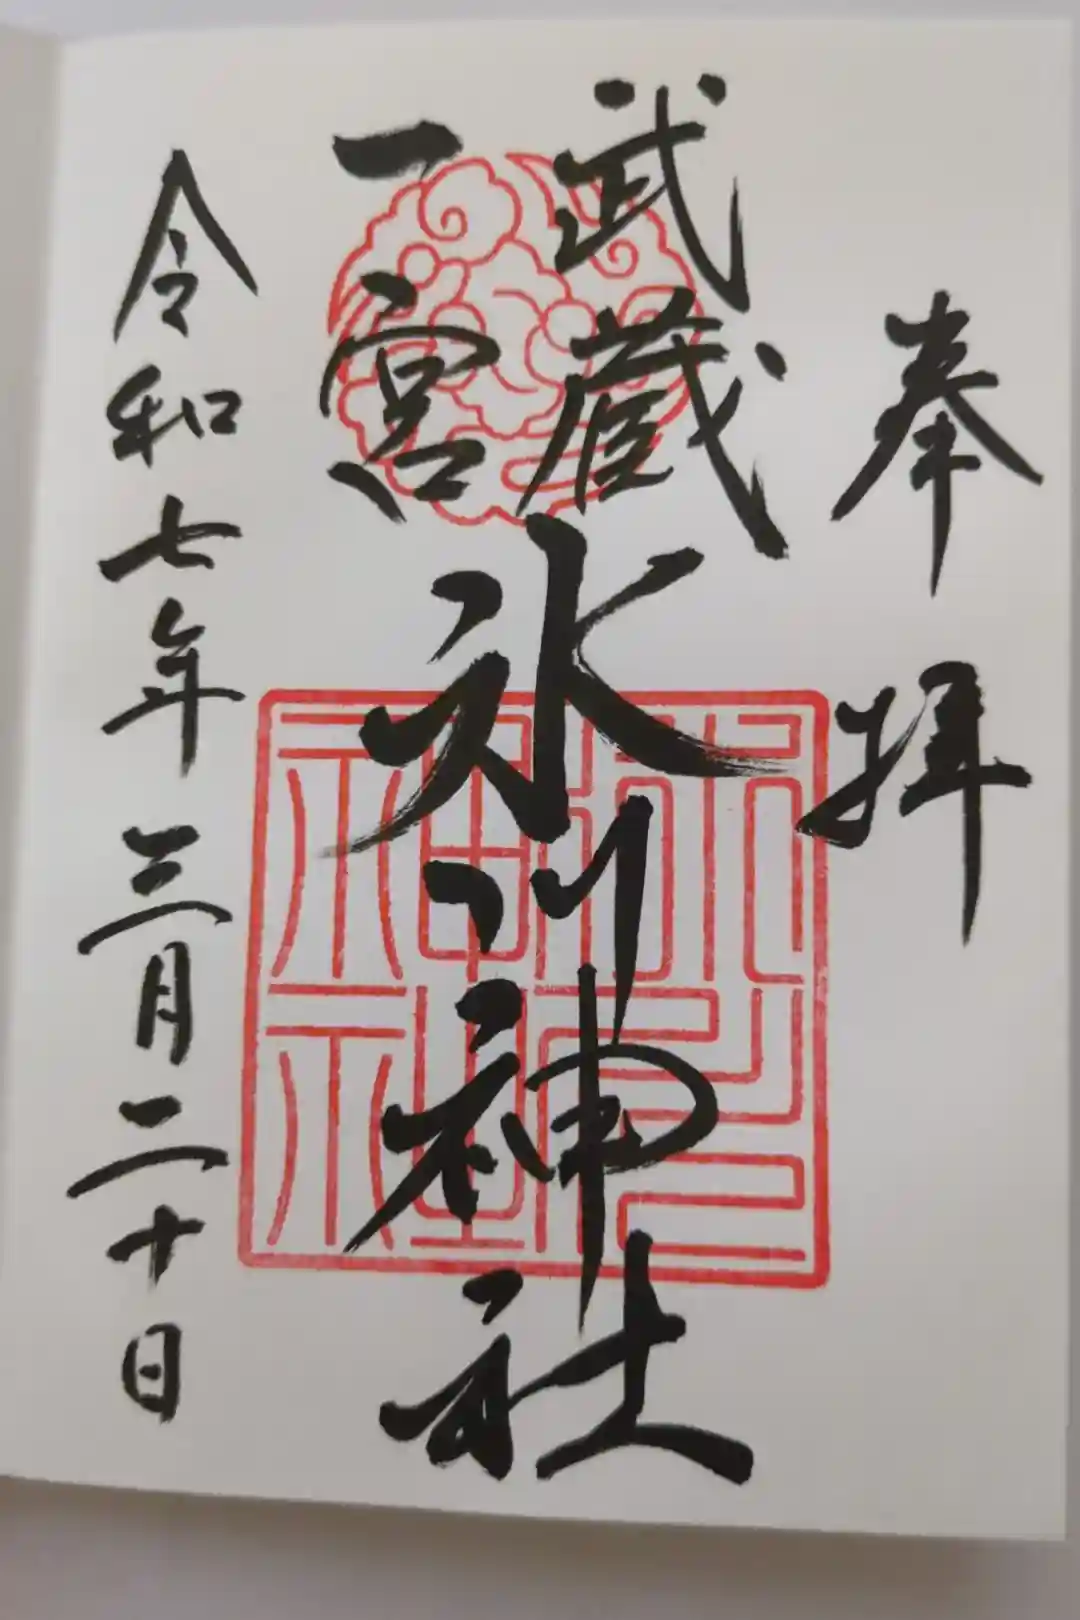 奉拝
武蔵
一宮
氷川神社
氷川神社
令和七年三月二十日